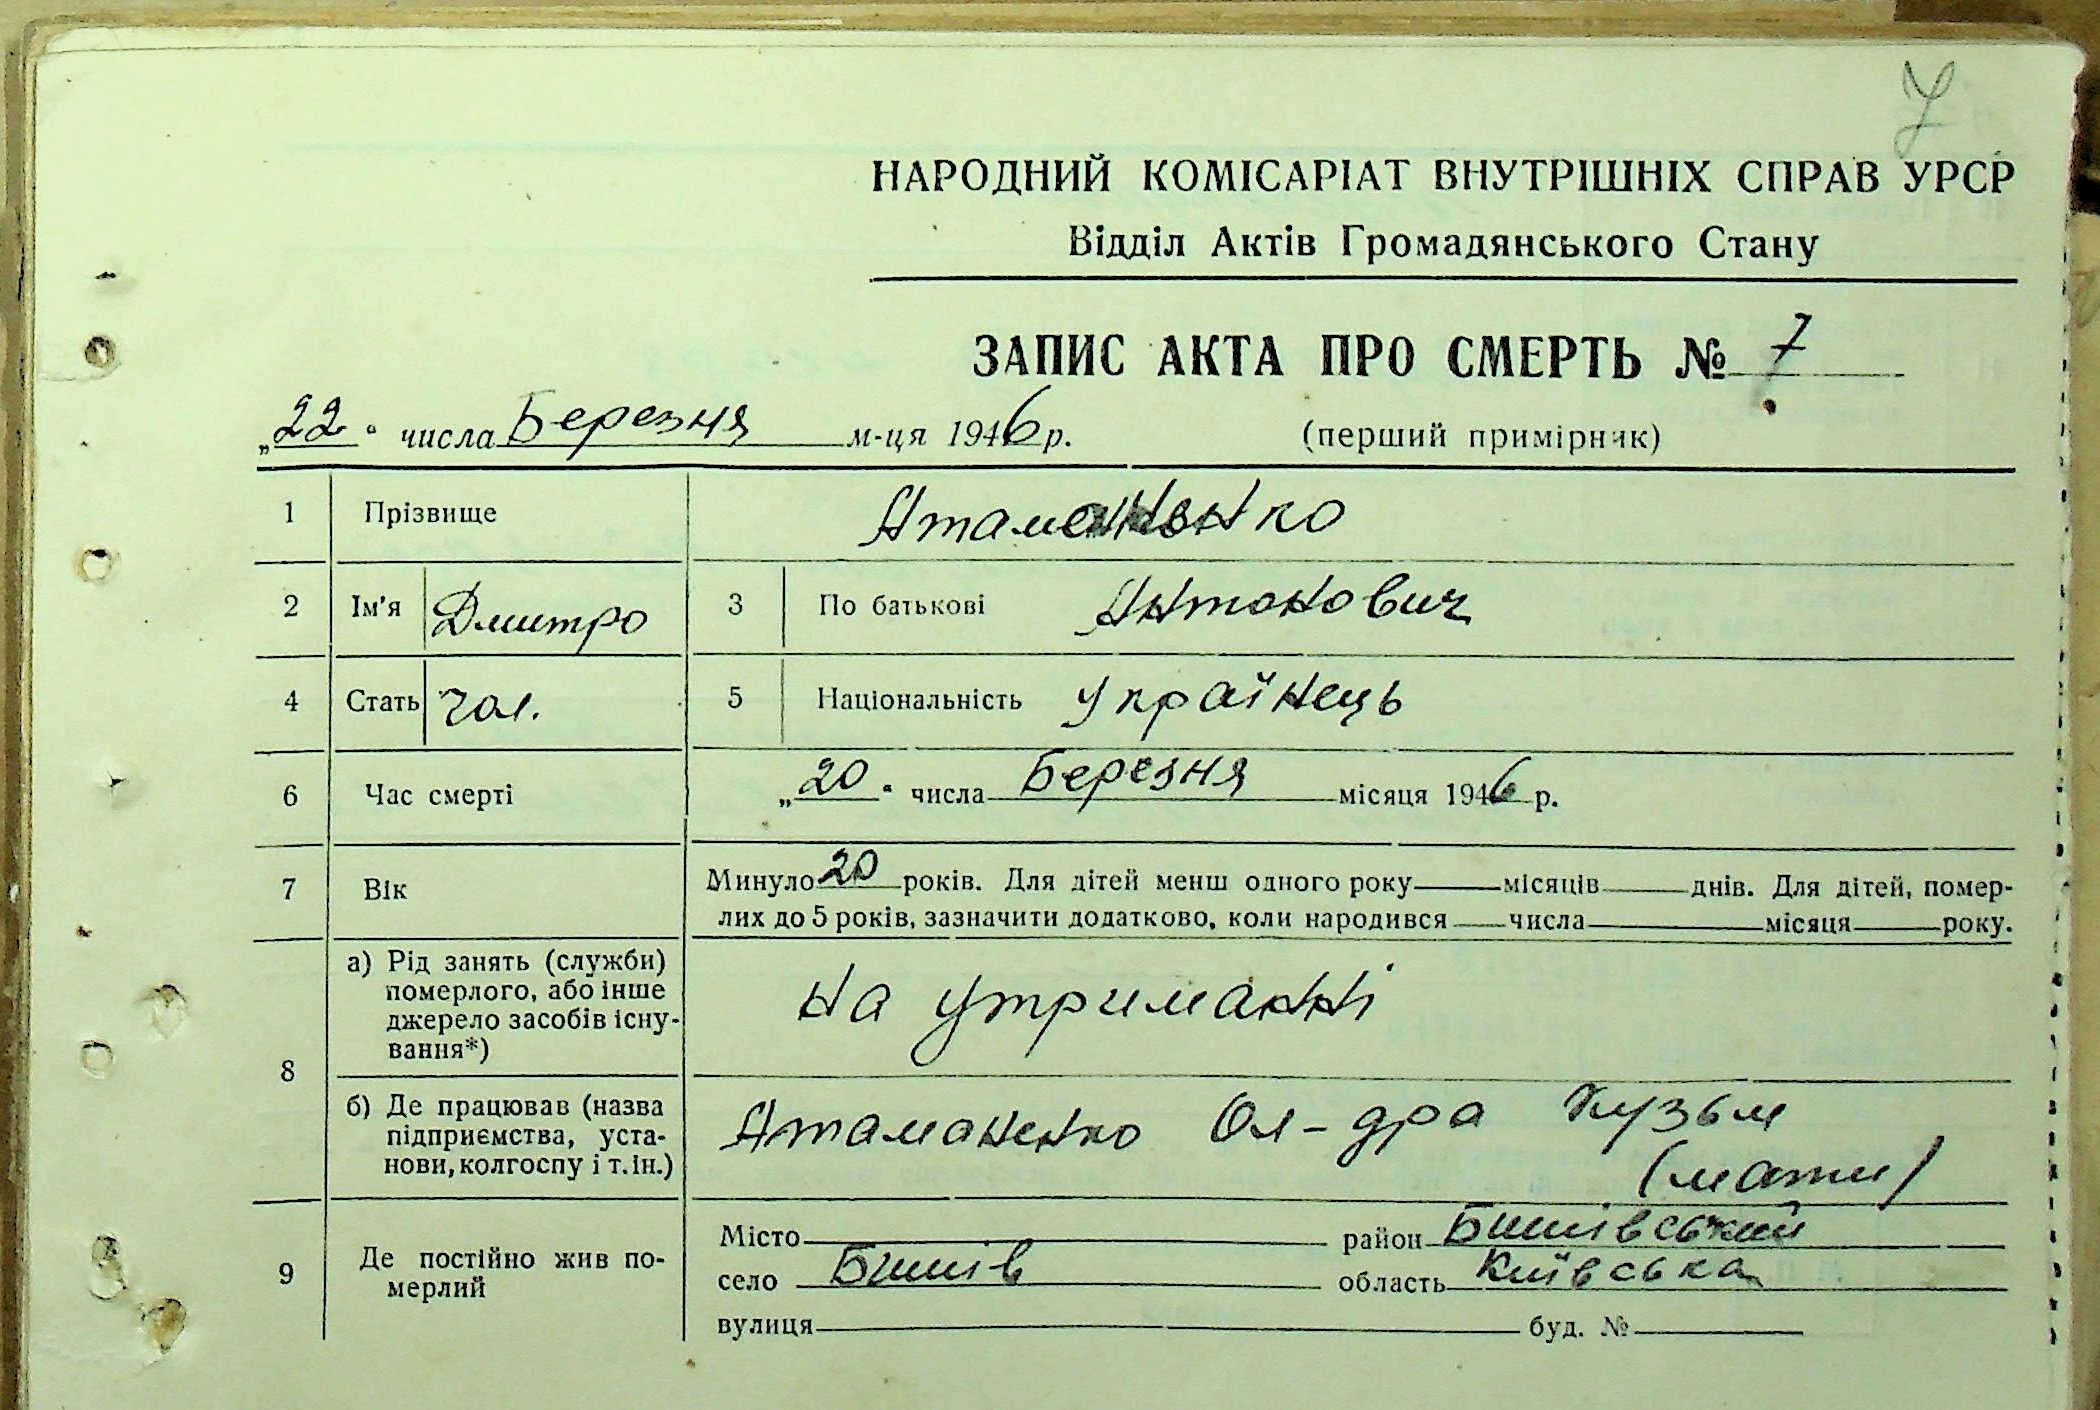 7
НАРОДНИЙ КОМІСАРІАТ ВНУТРІШНІХ СПРАВ УРСР
Відділ Актів Громадянського Стану
ЗАПИС АКТА ПРО СМЕРТЬ № 7
„22“ числа Березня м-ця 1946 р. (перший примірник)
1 Прізвище Атаманенко
2 Ім'я Дмитро 3 По батькові Антонович
4 Стать чол. 5 Національність Українець
6 Час смерті „20“ числа Березня місяця 1946 р.
7 Вік Минуло 20 років. Для дітей менш одного року місяців днів. Для дітей, помер-
лих до 5 років, зазначити додатково, коли народився числа місяця року.
8 а) Рід занять (служби)
померлого, або інше
джерело засобів існу-
вання*)
на утриманні
б) Де працював (назва
підприємства, уста-
нови, колгоспу і т. ін.)
Атаманенко Ол-дра Кузьм
(мати)
9 Де постійно жив по-
мерлий
Місто район Бишівський
село Бишів область Київська
вулиця буд. №